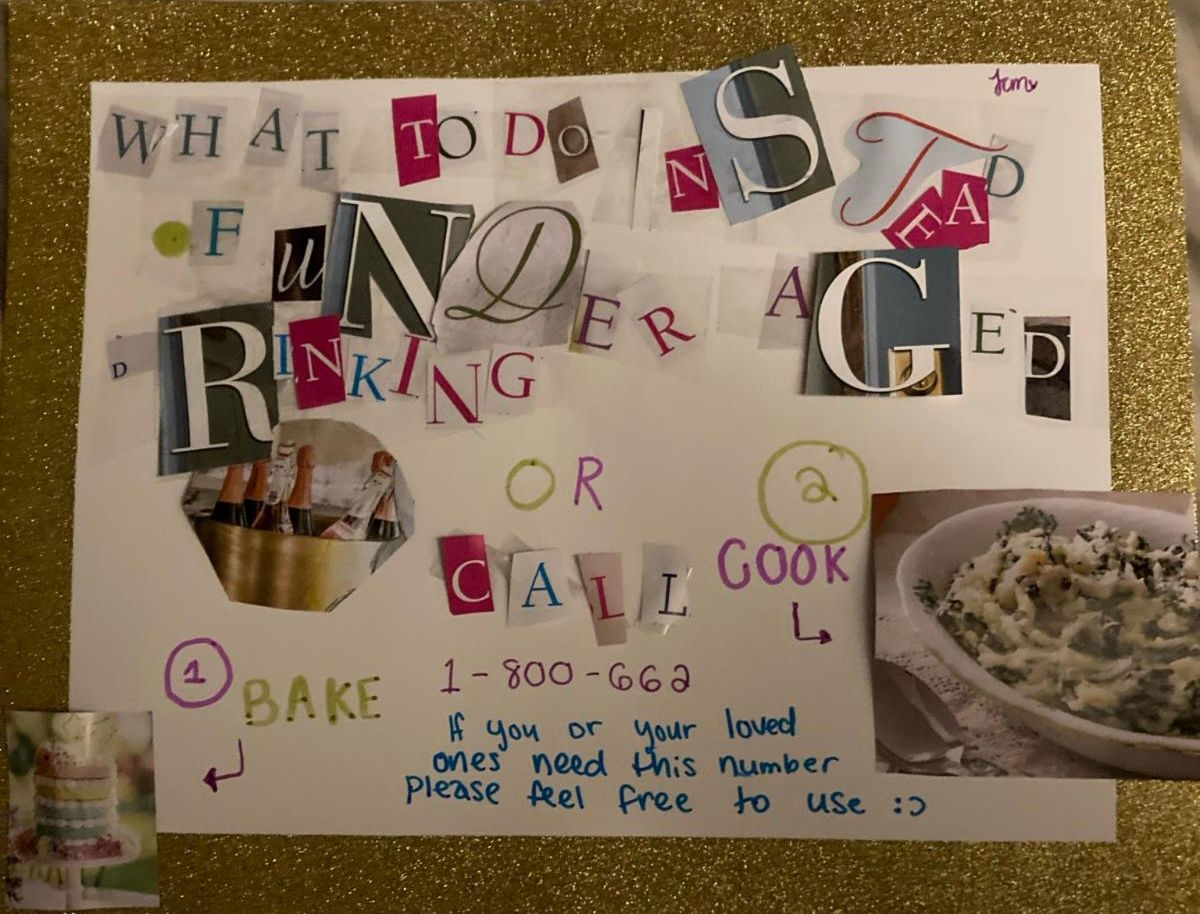 WHAT TO DO INSTEAD
OF UNDER AGED
DRINKING
OR
CALL
1-800-662
If you or your loved
ones need this number
Please feel free to use :)
1
BAKE
2
COOK